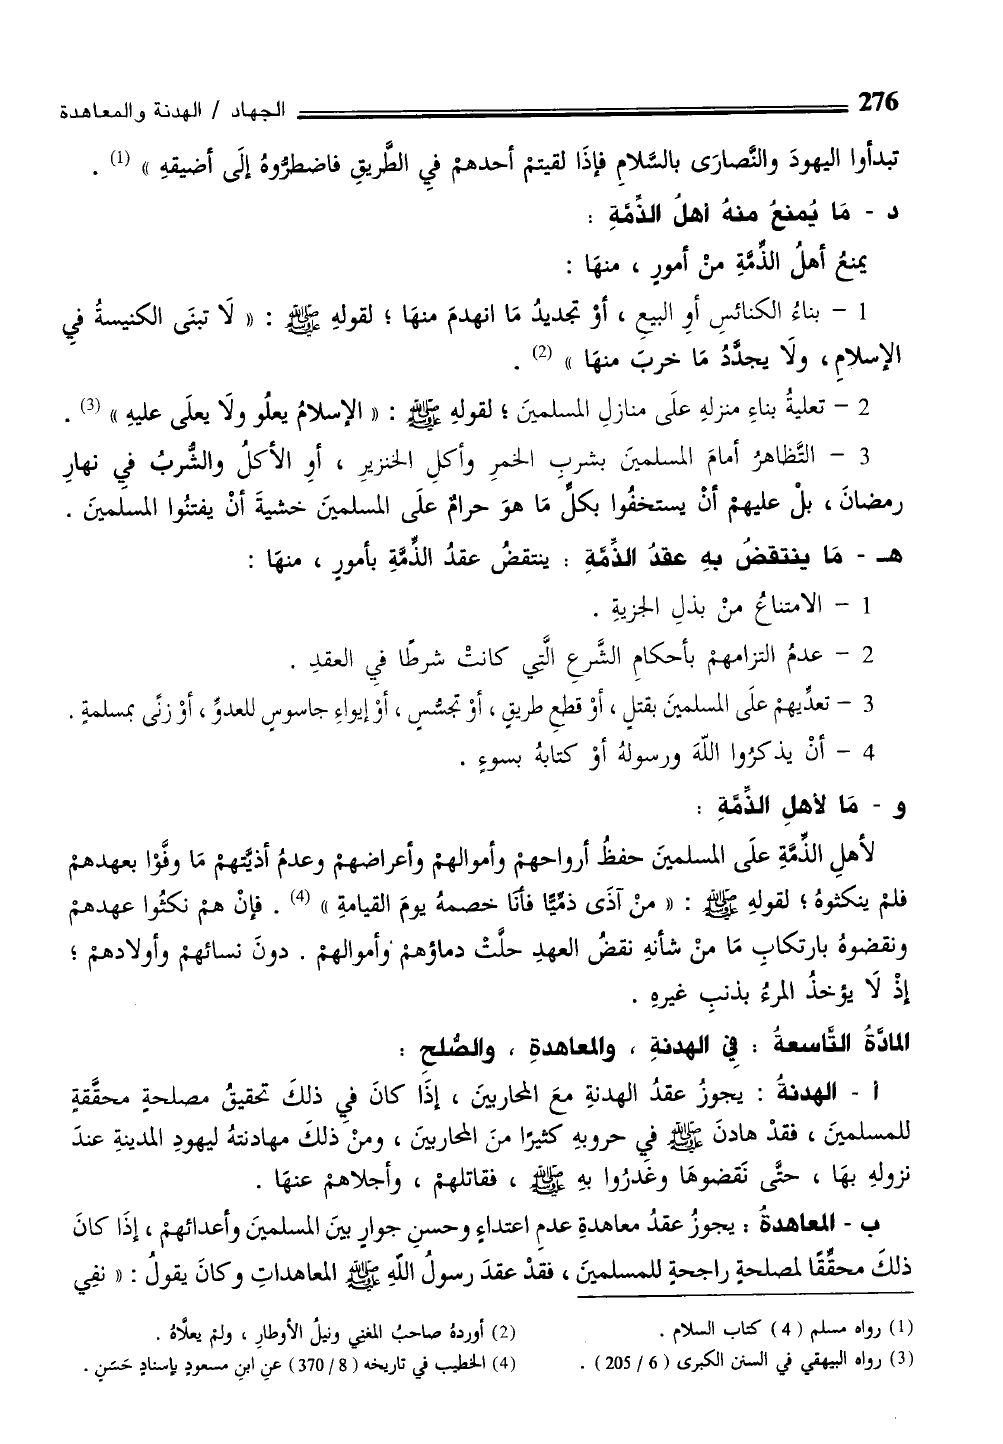 276 الجهاد / الهدنة والمعاهدة
تبدأوا اليهودَ والنَّصارَى بالسَّلامِ فإذَا لقيتمْ أحدهمْ فِي الطَّريقِ فاضطرُّوهُ إلَى أضيقهِ » (1) .
د - مَا يُمنعُ منهُ أهلُ الذِّمَّةِ :
يمنعُ أهلُ الذِّمَّةِ منْ أمورٍ ، منهَا :
1 – بناءُ الكنائسِ أوِ البيعِ ، أوْ تجديدُ مَا انهدمَ منهَا ؛ لقولهِ ﷺ : « لَا تبنَى الكنيسةُ فِي
الإسلامِ ، ولَا يجدَّدُ مَا خربَ منهَا » (2) .
2 – تعليةُ بناءِ منزلهِ علَى منازلِ المسلمينَ ؛ لقولهِ ﷺ : « الإسلامُ يعلُو ولَا يعلَى عليهِ » (3) .
3 – التَّظاهرُ أمامَ المسلمينَ بشربِ الخمرِ وأكلِ الخنزيرِ ، أوِ الأكلُ والشُّربُ فِي نهارِ
رمضانَ ، بلْ عليهمْ أنْ يستخفُوا بكلِّ مَا هوَ حرامٌ علَى المسلمينَ خشيةَ أنْ يفتنُوا المسلمينَ .
هـ - مَا ينتقضُ بهِ عقدُ الذِّمَّةِ : ينتقضُ عقدُ الذِّمَّةِ بأمورٍ ، منهَا :
1 – الامتناعُ منْ بذلِ الجزيةِ .
2 – عدمُ التزامهمْ بأحكامِ الشَّرعِ الَّتِي كانتْ شرطًا فِي العقدِ .
3 – تعدِّيهمْ علَى المسلمينَ بقتلٍ ، أوْ قطعِ طريقٍ ، أوْ تجسُّسٍ ، أوْ إيواءِ جاسوسٍ للعدوِّ ، أوْ زنًى بمسلمةٍ .
4 – أنْ يذكرُوا اللّهَ ورسولهُ أوْ كتابهُ بسوءٍ .
و - مَا لأهلِ الذِّمَّةِ :
لأهلِ الذِّمَّةِ علَى المسلمينَ حفظُ أرواحهمْ وأموالهمْ وأعراضهمْ وعدمُ أذيَّتهمْ مَا وفَّوْا بعهدهمْ
فلمْ ينكثوهُ ؛ لقولهِ ﷺ : « منْ آذَى ذمِّيًّا فأنَا خصمهُ يومَ القيامةِ » (4) . فإنْ همْ نكثُوا عهدهمْ
ونقضوهُ بارتكابِ مَا منْ شأنهِ نقضُ العهدِ حلَّتْ دماؤهمْ وأموالهمْ . دونَ نسائهمْ وأولادهمْ ؛
إذْ لَا يؤخذُ المرءُ بذنبِ غيرهِ .
المادَّةُ التَّاسعةُ : فِي الهدنةِ ، والمعاهدةِ ، والصُّلحِ :
أ - الهدنةُ : يجوزُ عقدُ الهدنةِ معَ المحاربينَ ، إذَا كانَ فِي ذلكَ تحقيقُ مصلحةٍ محقَّقةٍ
للمسلمينَ ، فقدْ هادنَ ﷺ فِي حروبهِ كثيرًا منَ المحاربينَ ، ومنْ ذلكَ مهادنتهُ ليهودِ المدينةِ عندَ
نزولهِ بهَا ، حتَّى نَقضوهَا وغدرُوا بهِ ﷺ ، فقاتلهمْ ، وأجلاهمْ عنهَا .
ب - المعاهدةُ : يجوزُ عقدُ معاهدةِ عدمِ اعتداءٍ وحسنِ جوارٍ بينَ المسلمينَ وأعدائهمْ ، إذَا كانَ
ذلكَ محقِّقًا لمصلحةٍ راجحةٍ للمسلمينَ ، فقدْ عقدَ رسولُ اللّهِ ﷺ المعاهداتِ وكانَ يقولُ : « نفِي
(1) رواه مسلم ( 4 ) كتاب السلام . (2) أوردهُ صاحبُ المغنِي ونيلُ الأوطارِ ، ولمْ يعلَّاهُ .
(3) رواه البيهقي في السنن الكبرى ( 6 / 205 ) . (4) الخطيب في تاريخه ( 8 / 370 ) عنِ ابنِ مسعودٍ بإسنادٍ حَسَنٍ .